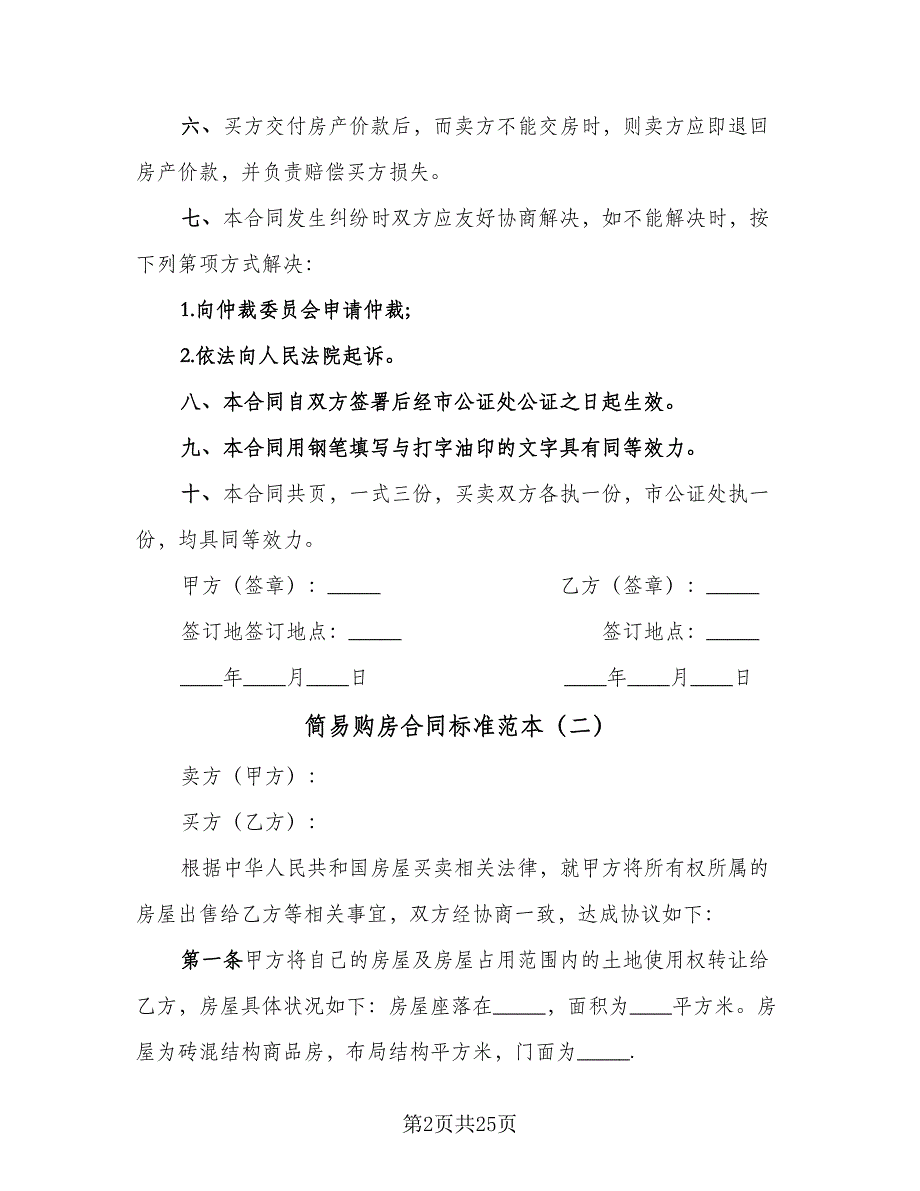 六、买方交付房产价款后，而卖方不能交房时，则卖方应即退回
房产价款，并负责赔偿买方损失。
七、本合同发生纠纷时双方应友好协商解决，如不能解决时，按
下列第项方式解决：
1.向仲裁委员会申请仲裁;
2.依法向人民法院起诉。
八、本合同自双方签署后经市公证处公证之日起生效。
九、本合同用钢笔填写与打字油印的文字具有同等效力。
十、本合同共页，一式三份，买卖双方各执一份，市公证处执一
份，均具同等效力。
甲方（签章）：_____ 乙方（签章）：_____
签订地签订地点：_____ 签订地点：_____
____年____月____日 ____年____月____日
简易购房合同标准范本（二）
卖方（甲方）：
买方（乙方）：
根据中华人民共和国房屋买卖相关法律，就甲方将所有权所属的
房屋出售给乙方等相关事宜，双方经协商一致，达成协议如下：
第一条甲方将自己的房屋及房屋占用范围内的土地使用权转让给
乙方，房屋具体状况如下：房屋座落在_____，面积为____平方米。房
屋为砖混结构商品房，布局结构平方米，门面为_____.
第2页共25页